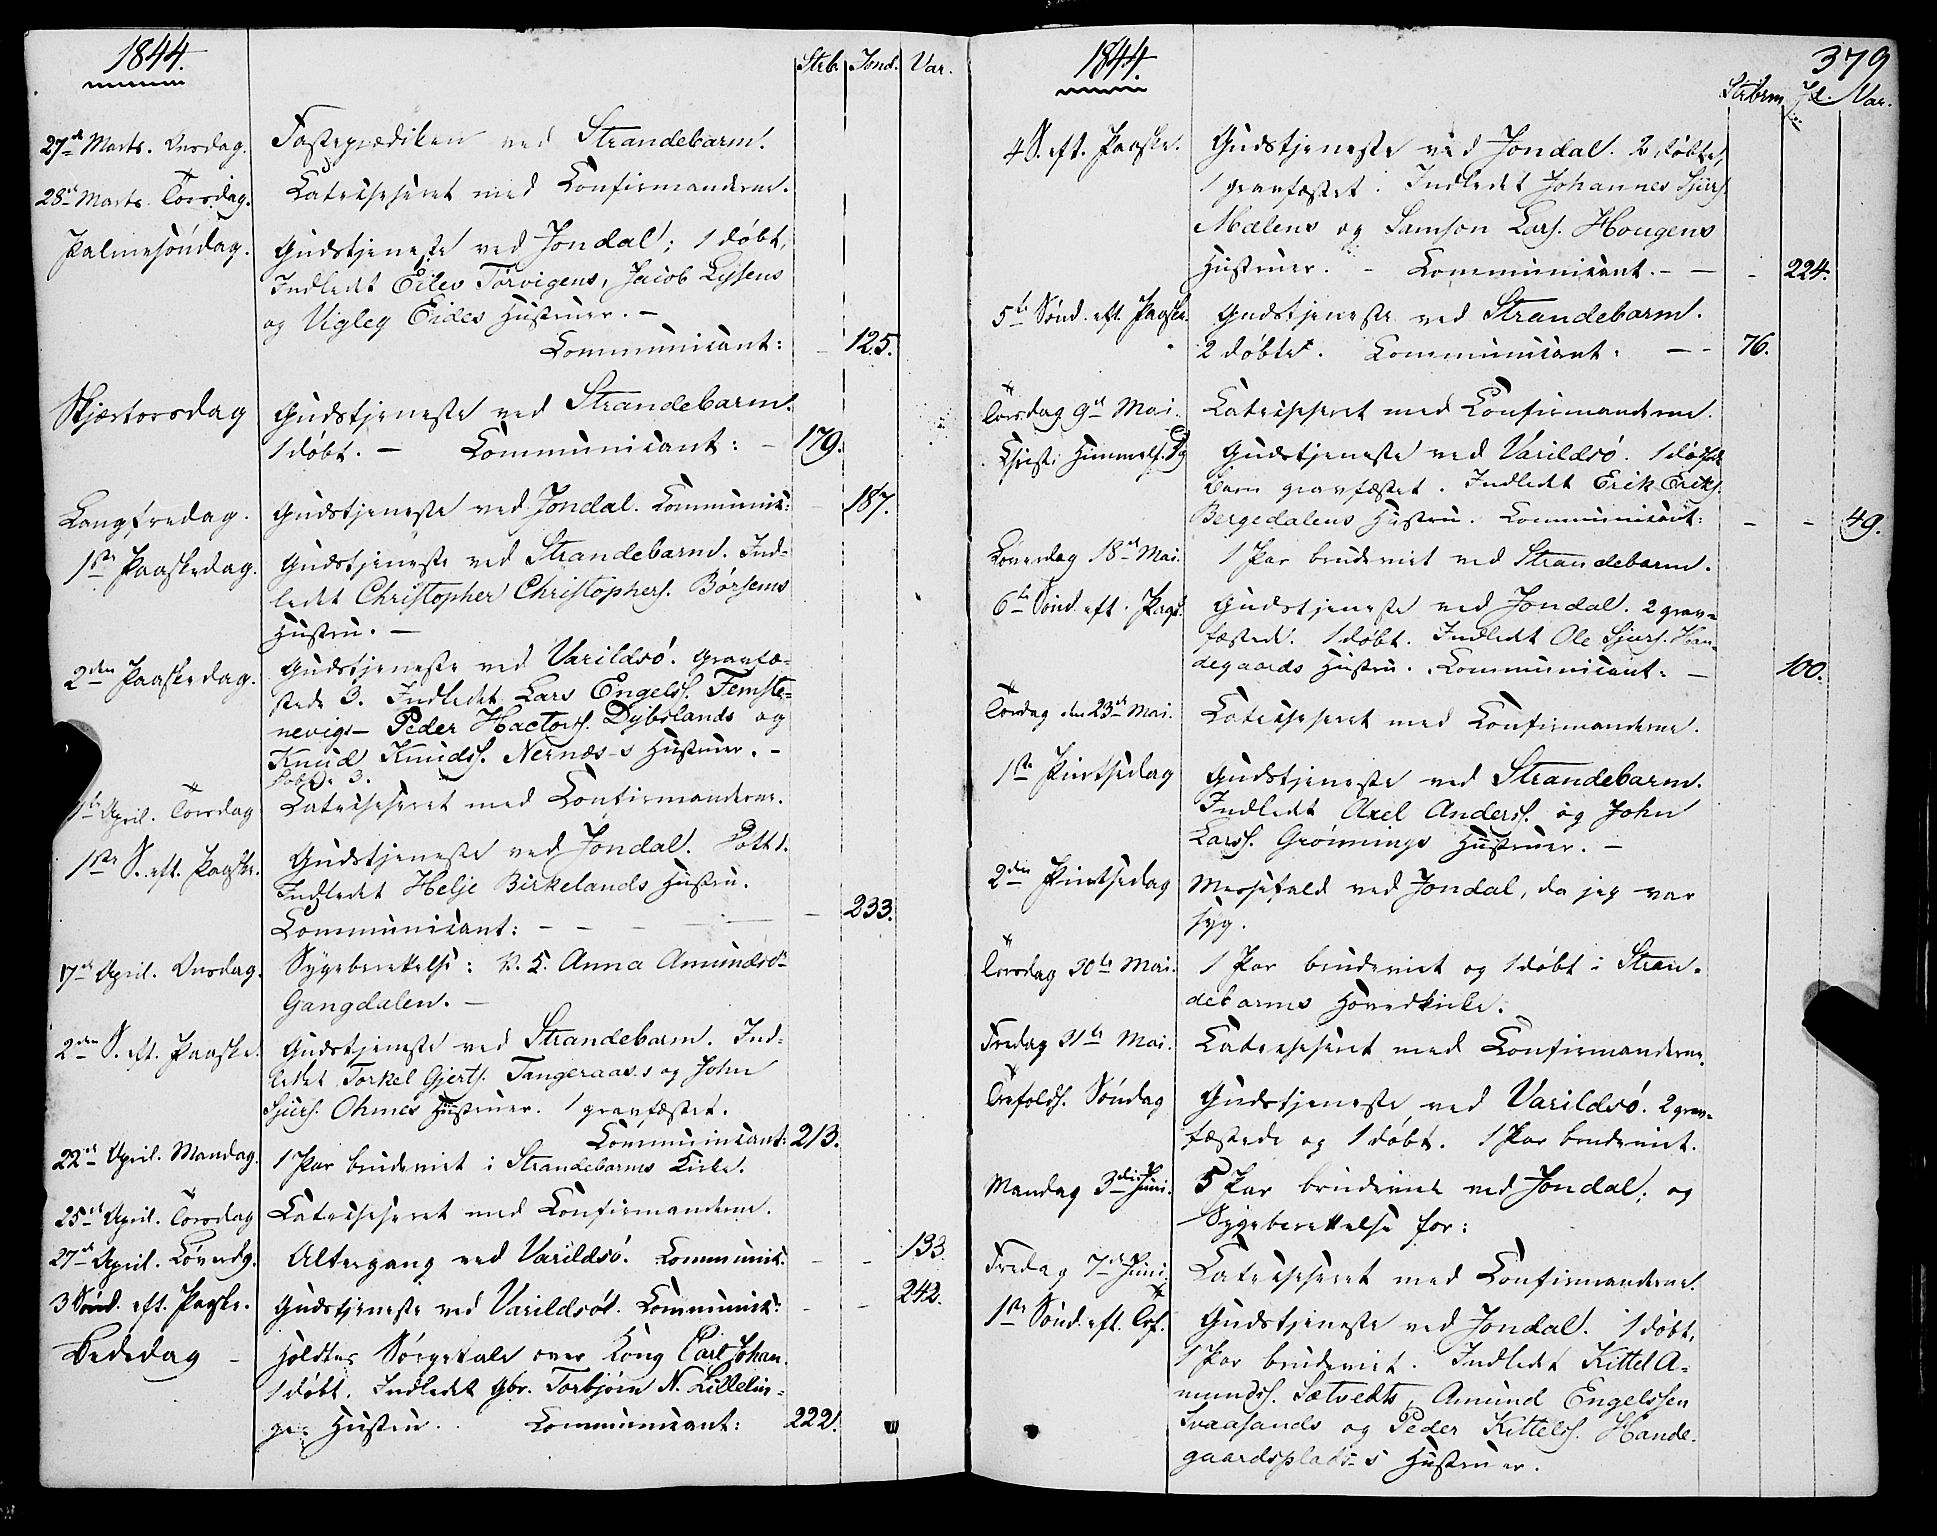 1844.
Strb. Jond. Var.
27de Marts. Onsdag. Fasteprædiken ved Strandebarm.
28de Marts. Torsdag. Catechiseret med Confirmanderne.
Palmesöndag. Gudstjeneste ved Jondal; 1 døbt,
Indledt Eilev Torvigens, Jacob Lysens
og Vigleg Eides Hustruer. –
Communicant: – 125.
Skjærtorsdag Gudstjeneste ved Strandebarm.
1 døbt. – Communicant: – 179.
Langfredag. Gudstjeneste ved Jondal. Communic: – 187.
1ste Paaskedag. Gudstjeneste ved Strandebarm. Ind-
ledt Christopher Christophers. Börsems
Hustru. –
2den Paaskedag. Gudstjeneste ved Varildsö. Gravfæ-
stede 3. Indledet Lars Engelss. Femste-
nevigs – Peder Hactorss. Dybslands og
Knud Knudss. Nernæs-s Hustruer. –
Døbte 3.
April. Torsdag Catechiseret med Confirmanderne.
1ste S. eft. Paaske. Gudstjeneste ved Jondal. Döbt 1.
Indledet Helje Birkelands Hustru.
Communicant: – – – – – 233.
17de April. Onsdag. Sygeberettelse: N. 5. Anna Amundsdr
Gangdalen. –
2den S. eft. Paaske. Gudstjeneste ved Strandebarm. Ind-
ledet Torkel Gjerts. Tangeraas-s og John
Sjurs. Ohmes Hustruer. 1 gravfæstet.
Communicant: 213.
22de April. Mandag. 1 Par brudeviet i Strandebarms Kirke.
25de April. Torsdag Catechiseret med Confirmanderne.
27de April. Löverdg. Altergang ved Varildsö. Communic: – – 133.
3 Sönd. eft. Paaske. Gudstjeneste ved Varildsöe. Communic: – – 242.
Bededag – Holdtes Sörgetale over Kong Carl Johan.
1 döbt. Indledet Gbr. Torbjörn N. Lillelin-
ges Hustru. Communicant: 222.
1844.
379
Strbrm Jd. Var.
4 S. eft. Paaske. Gudstjeneste ved Jondal. 2 døbte,
1 gravfæstet. Indledet Johannes Sjurs.
Mælens og Samson Lars. Hougens
Hustruer. – Communicant. – – – 224.
5te Sönd. eft. Paaske. Gudstjeneste ved Strandebarm.
2 döbte. Communicant: – – 76.
Torsdag 9de Mai. Catechiseret med Confirmanderne.
Christi Himmelf. Dg Gudstjeneste ved Varildsö. 1 dö
barn gravfæstet. Indledt Erik Eriks.
Bergedalens Hustru. Communicant: – – 49.
Löverdag 18de Mai. 1 Par brudeviet ved Strandebarm.
6te Sönd. eft. Paas. Gudstjeneste ved Jondal. 2 grav-
fæstede. 1 døbt. Indledt Ole Sjurs. Han-
degaards Hustru. Communicant: – 100.
Torsdag den 23de Mai. Catechiseret med Confirmanderne.
1ste Pintsedag Gudstjeneste ved Strandebarm.
Indledet Axel Anderss. og John
Larss. Grönnings Hustruer. –
2den Pintsedag Messefald ved Jondal, da jeg var
syg.
Torsdag 30te Mai. 1 Par brudeviet og 1 døbt i Stran-
debarms Hovedkirke.
Fredag 31te Mai. Catechiseret med Confirmanderne.
Trefolds. Söndag Gudstjeneste ved Varildsö. 2 grav-
fæstede og 1 döbt. 1 Par brudeviet.
Mandag 3die Juni. 5 Par brudeviet ved Jondal; og
Sygeberettelse for:
Fredag 7de Juni. Catechiseret med Confirmanderne.
1ste Sönd. eft. Tref. Gudstjeneste ved Jondal. 1 döbt,
1 Par brudeviet. Indledt Kittel A-
mundss. Sætvedts, Amund Engelssen
Svaasands og Peder Kittelss. Hande-
gaardsplads-s Hustruer.